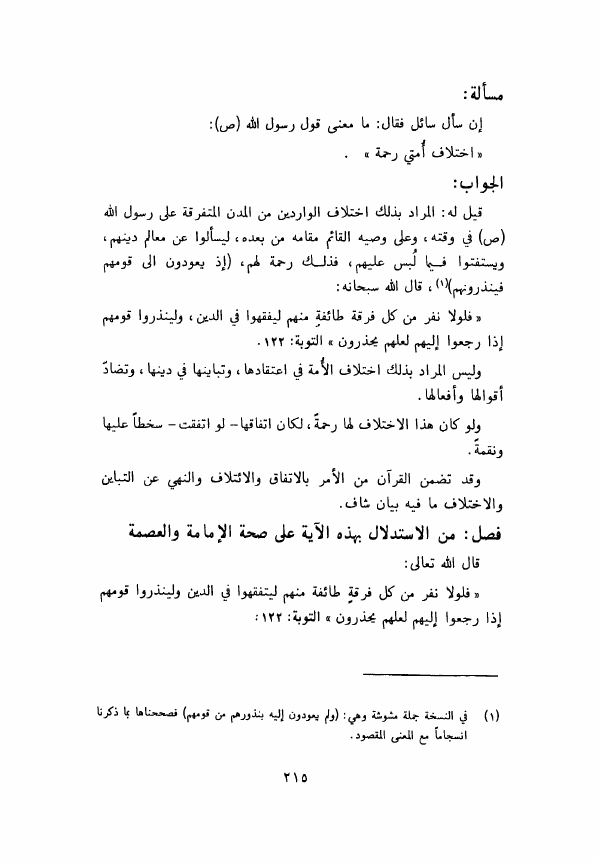 مسألة:
إن سأل سائل فقال: ما معنى قول رسول الله (ص):
« اختلاف أُمتي رحمة » .
الجواب:
قيل له: المراد بذلك اختلاف الواردين من المدن المتفرقة على رسول الله
(ص) في وقته، وعلى وصيه القائم مقامه من بعده، ليسألوا عن معالم دينهم،
ويستفتوا فيما لُبس عليهم، فذلك رحمة لهم، (إذ يعودون الى قومهم
فينذرونهم)(١)، قال الله سبحانه:
« فلولا نفر من كل فرقة طائفةٍ منهم ليفقهوا في الدين، ولينذروا قومهم
إذا رجعوا إليهم لعلهم يحذرون » التوبة: ١٢٢.
وليس المراد بذلك اختلاف الأُمة في اعتقادها، وتباينها في دينها، وتضادّ
أقوالها وأفعالها.
ولو كان هذا الاختلاف لها رحمةً، لكان اتفاقها - لو اتفقت - سخطاً عليها
ونقمةً.
وقد تضمن القرآن من الأمر بالاتفاق والائتلاف والنهي عن التباين
والاختلاف ما فيه بيان شاف.
فصل: من الاستدلال بهذه الآية على صحة الإمامة والعصمة
قال الله تعالى:
« فلولا نفر من كل فرقةٍ طائفة منهم ليتفقهوا في الدين ولينذروا قومهم
إذا رجعوا إليهم لعلهم يحذرون » التوبة: ١٢٢:
(١) في النسخة جملة مشوشة وهي: (ولم يعودون إليه بنذورهم من قومهم) فصححناها بما ذكرنا
انسجاماً مع المعنى المقصود.
٢١٥